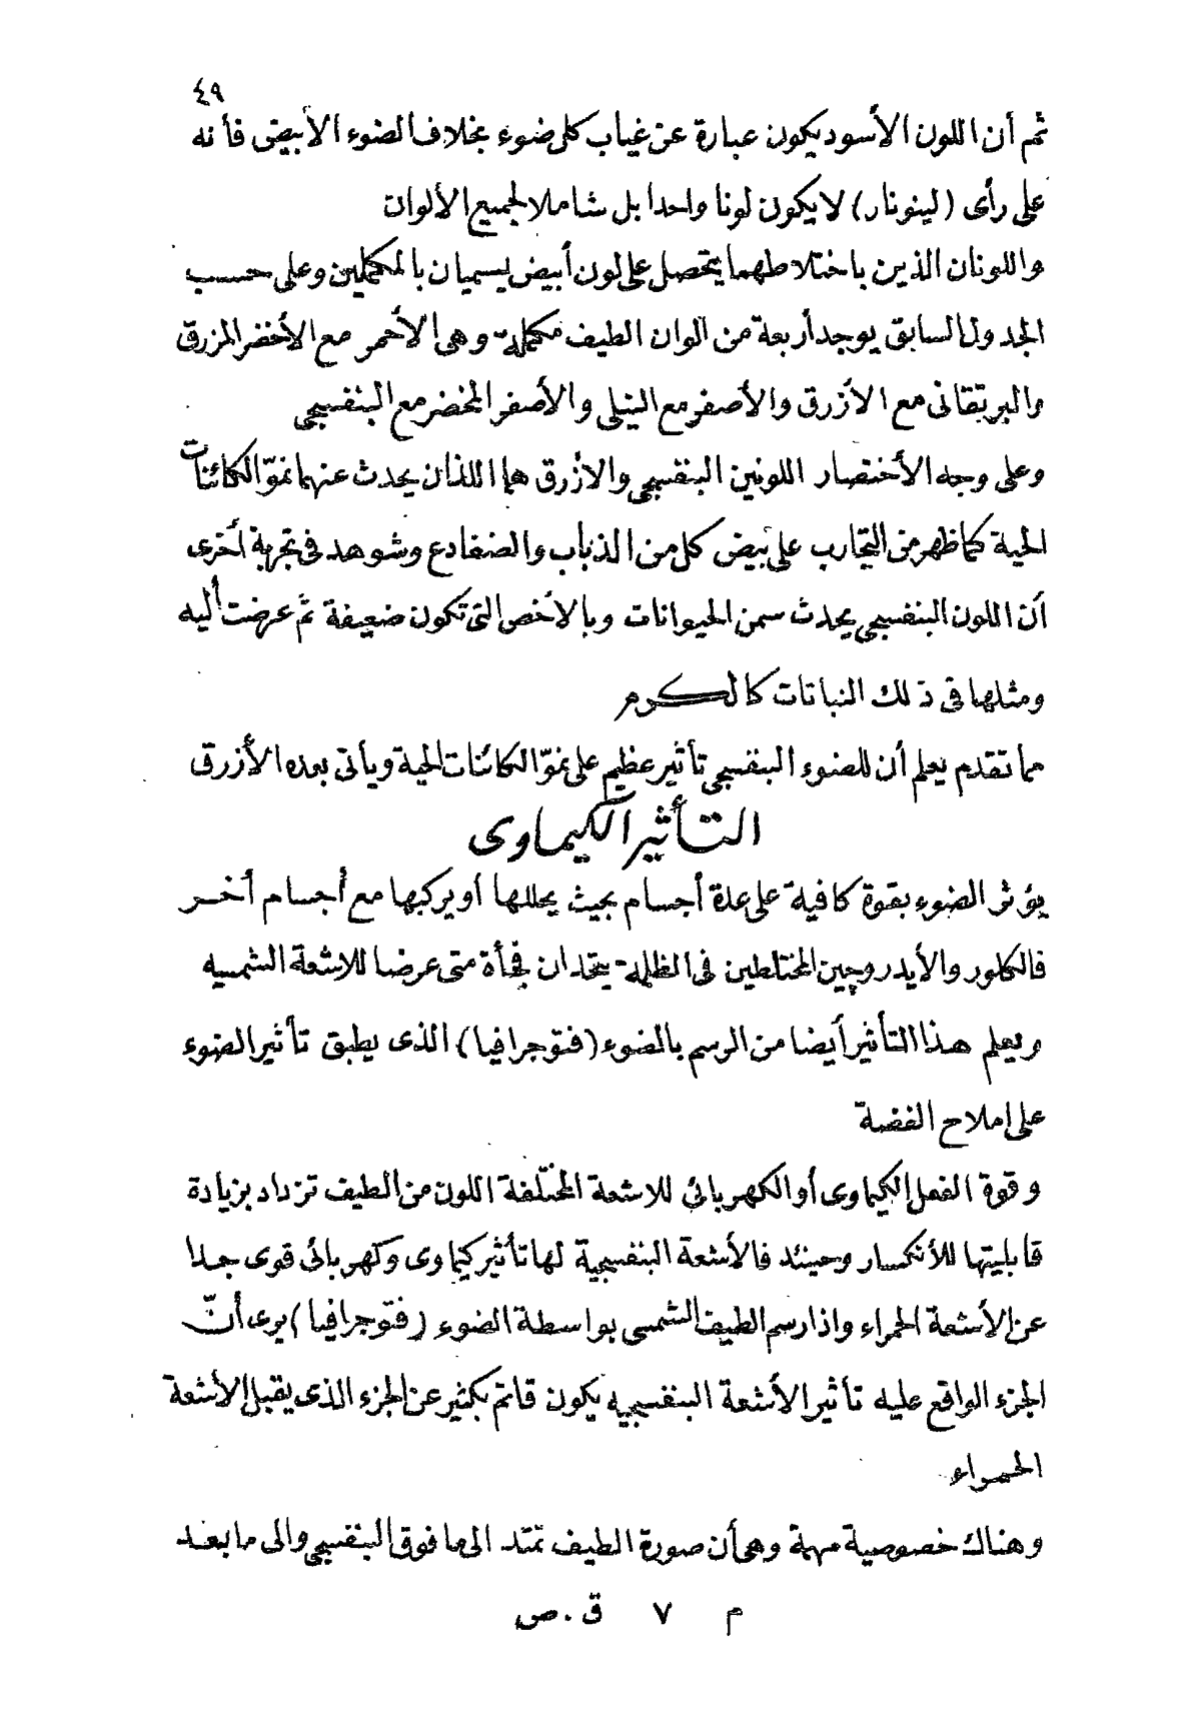 ٤٩
ثم أن اللون الأسود يكون عبارة عن غياب كل ضوء بخلاف الضوء الأبيض فأنه
على رأى (لينونار) لا يكون لونا واحدا بل شاملا لجميع الألوان
واللونان الذين باختلاطهما يتحصل على لون أبيض يسميان بالمكملين وعلى حسب
الجدول السابق يوجد أربعة من الوان الطيف مكملة وهى الأحمر مع الأخضر المزرق
والبرتقانى مع الأزرق والأصفر مع النيلى والأصفر المخضر مع البنفسجى
وعلى وجه الأختصار اللونين البنفسجى والازرق هما اللذان يحدث عنهما نموّ الكائنات
الحية كما ظهر من التجارب على بيض كل من الذباب والضفادع وشوهد فى تجربة أخرى
أن اللون البنفسجى يحدث سمن الحيوانات وبالأخص التى تكون ضعيفة ثم عرضت أليه
ومثلها فى ذلك النباتات كالكرم
مما تقدم يعلم أن للضوء البنفسجى تأثير عظيم على نموّ الكائنات الحية ويأتى بعده الأزرق
التأثير الكيماوى
يؤثر الضوء بقوة كافية على عدة أجسام بحيث يحللها أو يركبها مع أجسام أخر
فالكلور والأيدروچين المختلطين فى الظلمة يتحدان فجأة متى عرضا للاشعة الشمسيه
ويعلم هذا التأثير أيضا من الرسم بالضوء (فتوجرافيا) الذى يطبق تأثير الضوء
على املاح الفضة
وقوة الفعل الكيماوى أو الكهربائى للاشعة المختلفة اللون من الطيف تزداد بزيادة
قابليتها للأنكسار وحينئد فالأشعة البنفسجية لها تأثير كيماوى وكهربائى قوى جدا
عن الأشعة الحمراء واذا رسم الطيف الشمسى بواسطة الضوء (فتوجرافيا) يرى أنّ
الجزء الواقع عليه تأثير الأشعة البنفسجيه يكون قاتم بكثير عن الجزء الذى يقبل الأشعة
الحمراء
وهناك خصوصية مهمة وهى أن صورة الطيف تمتد الى ما فوق البنفسجى والى ما بعد
م ٧ ق . ص